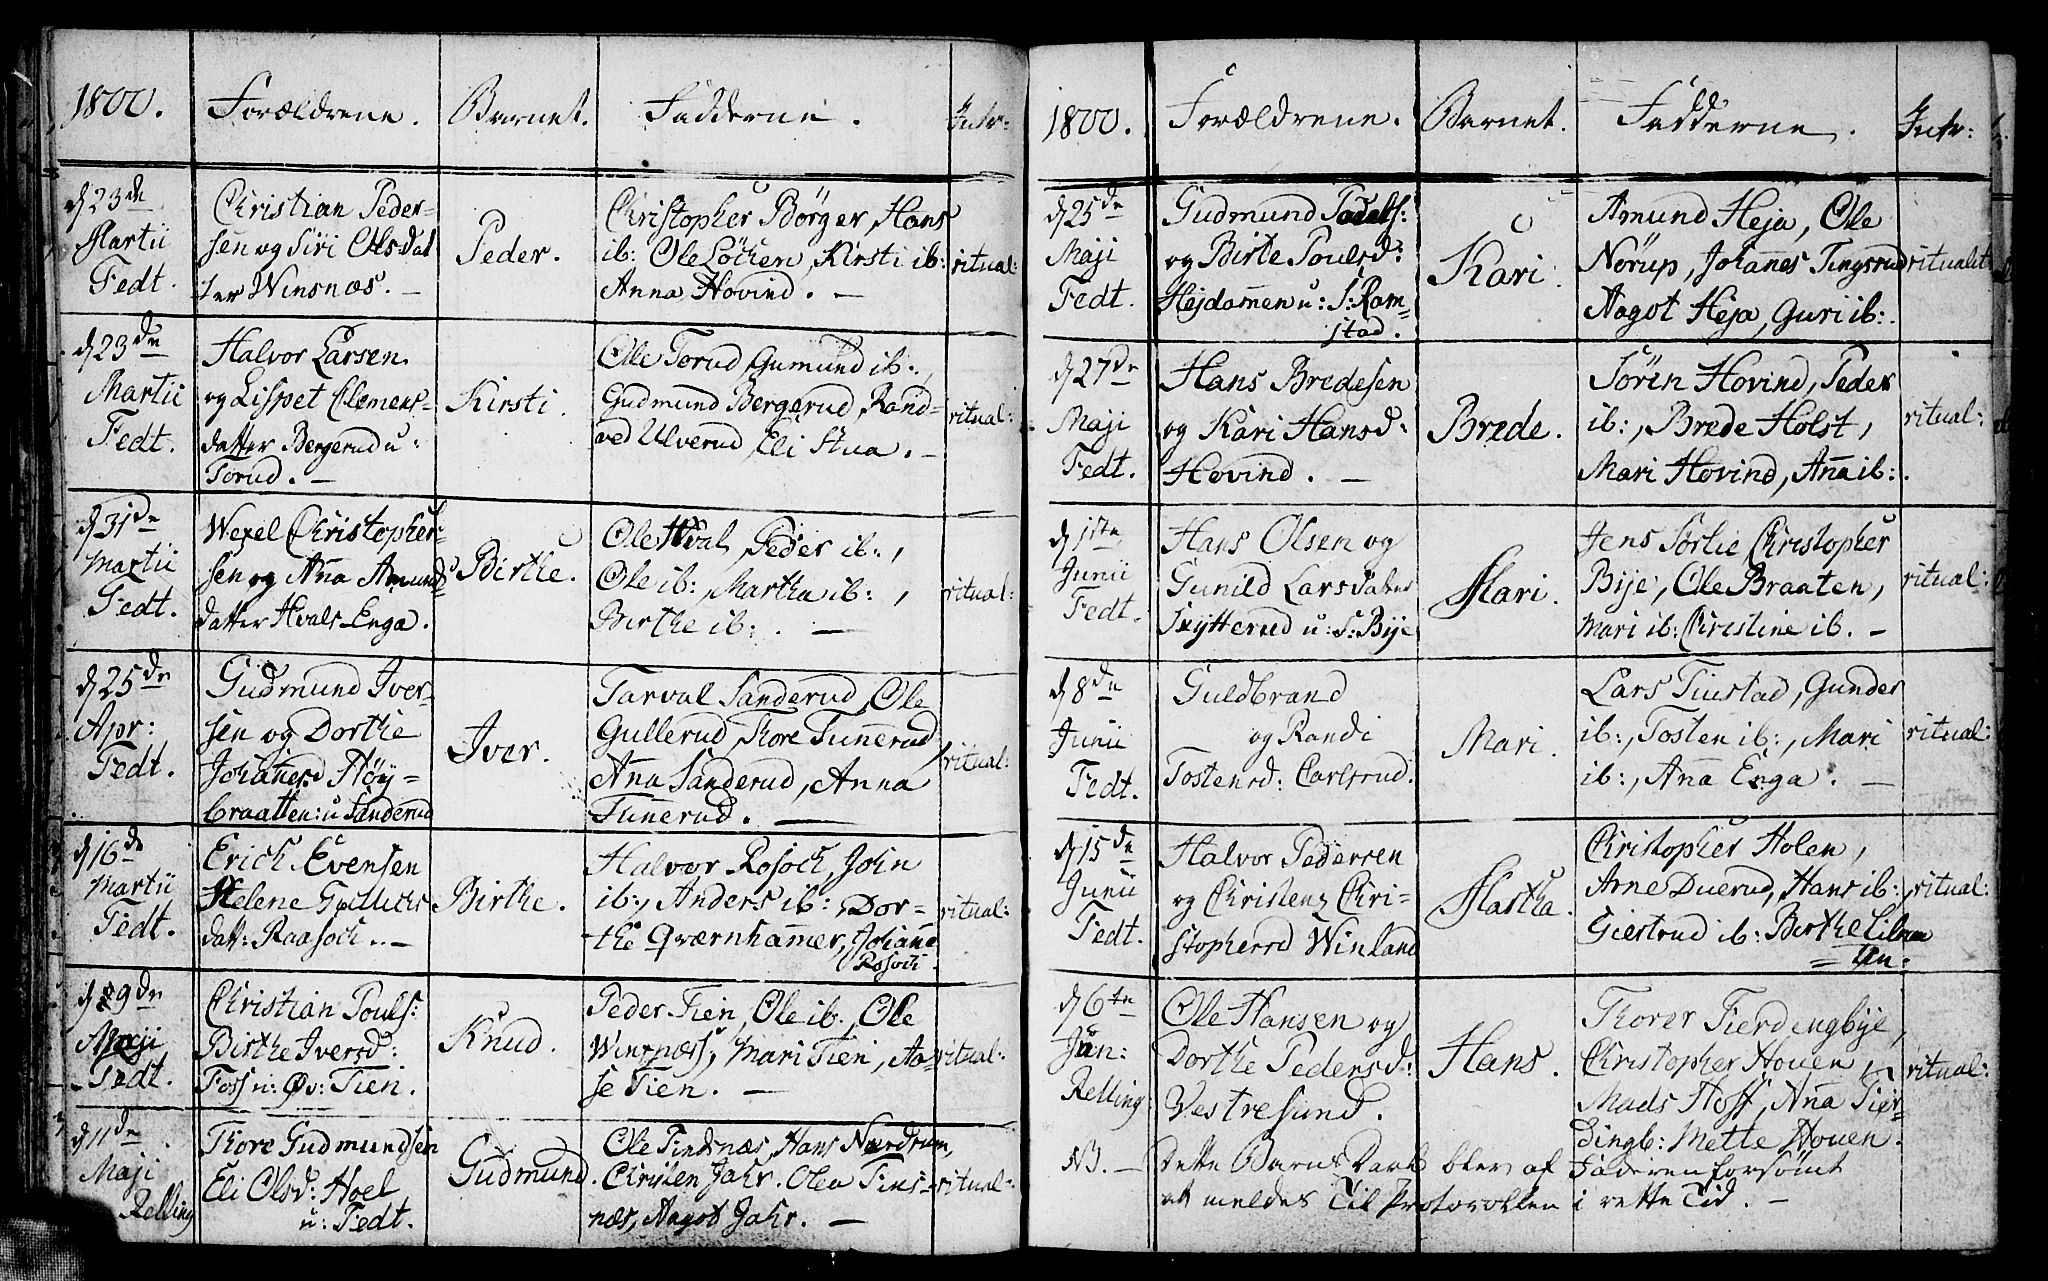 1800. Forældrene. Barnet. Fadderne. Intr:
d 23de Martii Fedt.
Christian Peder-
sen og Siri Olsdat
ter Winsnæs. —
Peder.
Christopher Börger, Hans
ib: Ole Löchen, Kirsti ib:
Anna Hovind. —
ritual:
d 23de Martii Fedt.
Halvor Larsen
og Lispet Clemens-
datter Bergerud u:
Torud. —
Kirsti.
Ole Torud, Gumund ib:,
Gudmund Bergerud, Rand-
ved Ulverud, Eli Stua. —
ritual:
d 31de Martii Fedt.
Wexel Christopher-
sen og Aña Amunds
datter Hvals-Enga.
Birthe.
Ole Hval, Peder ib:,
Ole ib:, Martha ib:,
Birthe ib: . —
ritual:
d 25de Apr: Fedt.
Gudmund Iver-
sen og Dorthe
Johañesd Höy-
braatten: u Sanderud
Iver.
Tarval Sanderud, Ole
Gullerud, Thore Tunerud
Aña Sanderud, Anna
Tunerud. —
ritual:
d 16de Martii Fedt.
Erich Evensen
Helene
datt: Raasoch. —
Birthe.
Halvor Rosoch, John
ib:, Anders ib: Dor-
the Qværnhamer, Johane
Rosoch.
ritual:
d 9de Maji Fedt.
Christian Pouls:
Birthe Iversd:
Foss u: Öv: Tien.
Knud.
Peder Tien, Ole ib:, Ole
Winsnæss, Mari Tien, Aa-
se Tien. —
ritual:
d 11de Maji Relling
Thore Gudmundsen
Eli Olsd: Hoel
u: Fedt.
Gudmund.
Ole Tindsnæs, Hans Nordrum,
Christen Jahr. Olea Tins-
næs, Aagot Jahr. —
ritual:
1800. Forældrene. Barnet. Fadderne. Intr:
d 25de Maji Fedt.
Gudmund
og Birte Poulsd:
Hejdamen u: S: Ram-
stad.
Kari.
Amund Heja, Ole
Nörup, Johañes Tingsrud
Aagot Heja, Guri ib:.
ritualit:
d 27de Maji Fedt.
Hans Bredesen
og Kari Hansd:
Hovind. —
Brede.
Sören Hovind, Peder
ib:, Brede Holst,
Mari Hovind, Aña ib:.
ritual:
d 1ste Junii Fedt.
Hans Olsen og
Gunild Larsdatter
Skytterud u: S: Bije
Mari.
Jens Sörlie Christopher
Bije, Ole Braaten,
Mari ib: Christine ib. —
ritual:
d 8de Junii Fedt.
Guldbrand
og Randi
Tostensd: Carlsrud.
Mari.
Lars Tiustad, Gunder
ib:, Tosten ib:, Mari
ib:, Aña Enga. —
ritual:
d 15de Junii Fedt.
Halvor Pedersen
og Christenz Chri-
stophersd Winland
Martha.
Christopher Holen,
Arne Duerud, Hans ib:,
Giestrud ib: Berthe
ritual:
d 6te Jan: Relling:
Ole Hansen og
Dorthe Pedersd:
Vestresund.
Hans.
Thorer Fierdingbye,
Christopher Houen,
Mads Hoff, Aña Fier-
dingb: Mette Houen.
ritual:
NB. — Dette Barns Daab blev af Faderen forsömt
at meldes Til Protocollen i rette Tid. —